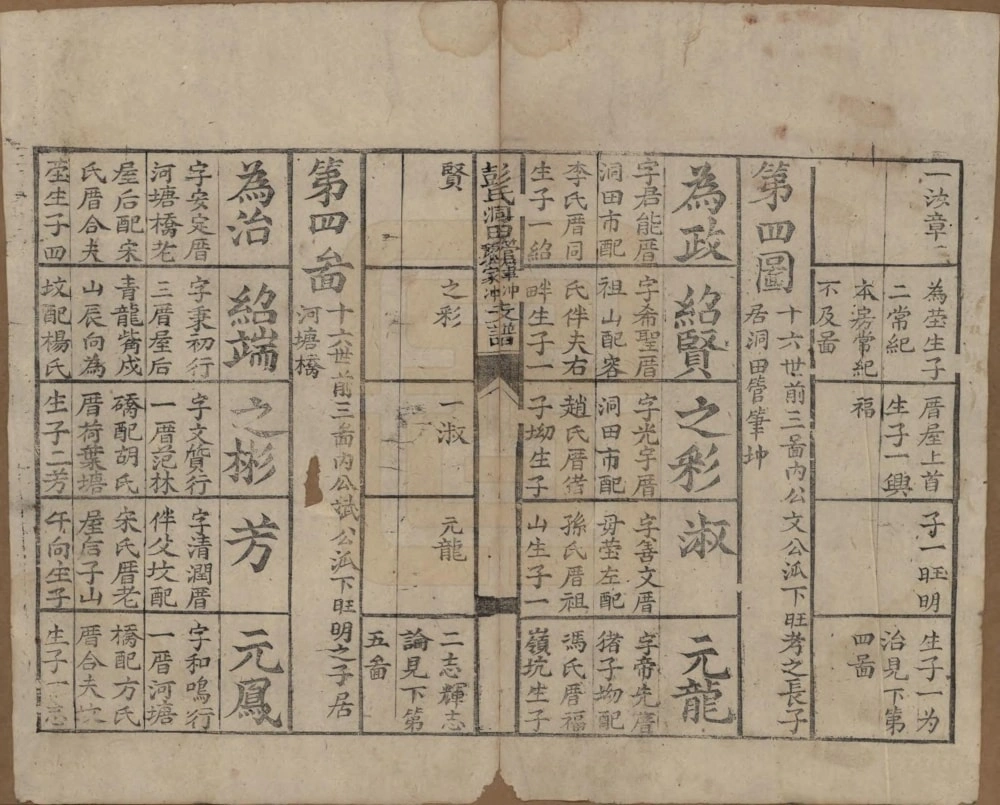 一法章
為茔生子
二常紀
本房常紀
不及啚
厝屋上首
生子一興
福
子一旺明
生子一为
治見下第
四啚
第四圖
十六世前三啚內公文公派下旺考之長子
居洞田管筆坤
為政
字君能厝
洞田市配
李氏厝同
生子一紹
紹賢
字希聖厝
祖山配容
氏伴夫右
畔生子一
之彩
字光宇厝
洞田市配
趙氏厝
子坳生子
淑
字善文厝
毋茔左配
孫氏厝祖
山生子一
元龍
字帝先厝
猪子坳配
馮氏厝福
嶺坑生子
彭氏洞田
文譜
賢
之彩
一淑
元龍
二志輝志
論見下第
五啚
第四啚
十六世前三啚內公斌公派下旺明之子居
河塘橋
為治
字安定厝
河塘橋老
屋后配宋
氏厝合夫
茔生子四
紹端
字秉初行
三厝屋后
青龍嘴戍
山辰向為
坟配楊氏
之彬
字文質行
一厝范林
磜配胡氏
厝荷葉塘
生子二芳
芳
字清潤厝
伴父坟配
宋氏厝老
屋后子山
午向生子
元鳳
字和鳴行
一厝河塘
橋配方氏
厝合夫坟
生子一志